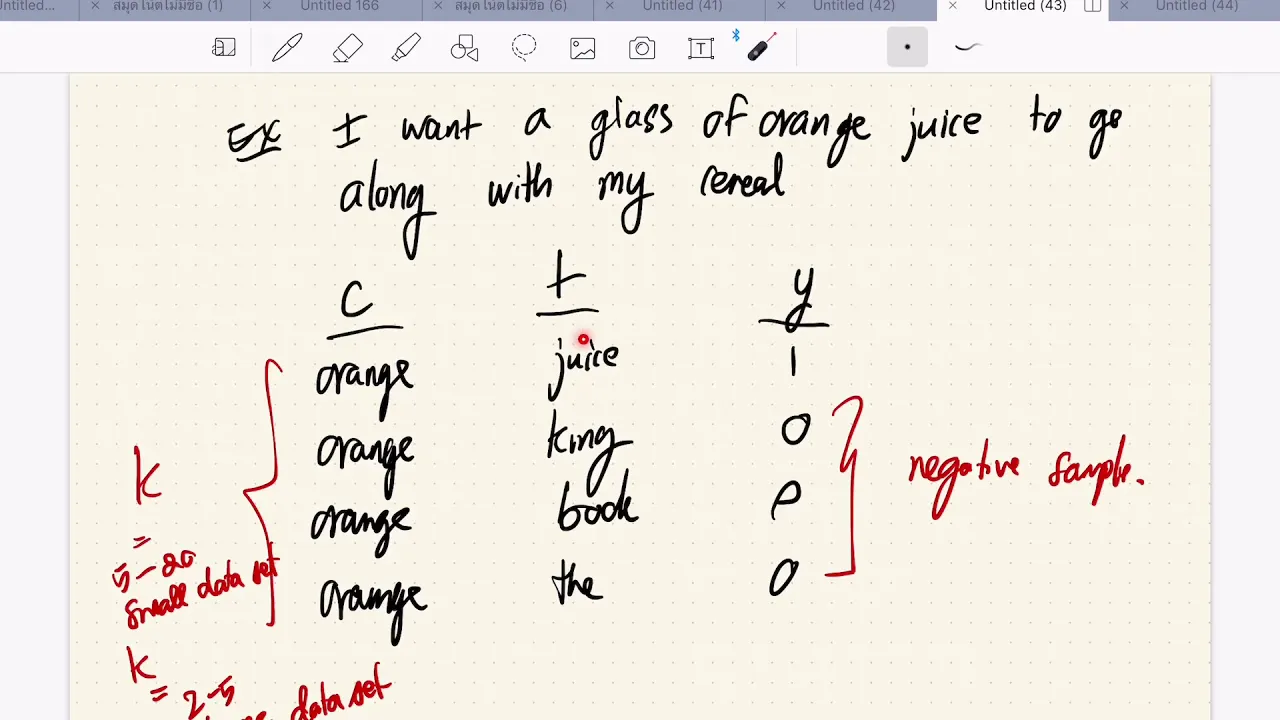 Untitled...
สมุดโน้ตไม่มีชื่อ (1)
Untitled 166
สมุดโน้ตไม่มีชื่อ (6)
Untitled (41)
Untitled (42)
Untitled (43)
Untitled (44)
Ex I want a glass of orange juice to go
along with my cereal
c t y
orange juice 1
orange king 0
orange book 0
orange the 0
negative sample.
k
=
5-20
small data set
k
= 2-5
data set